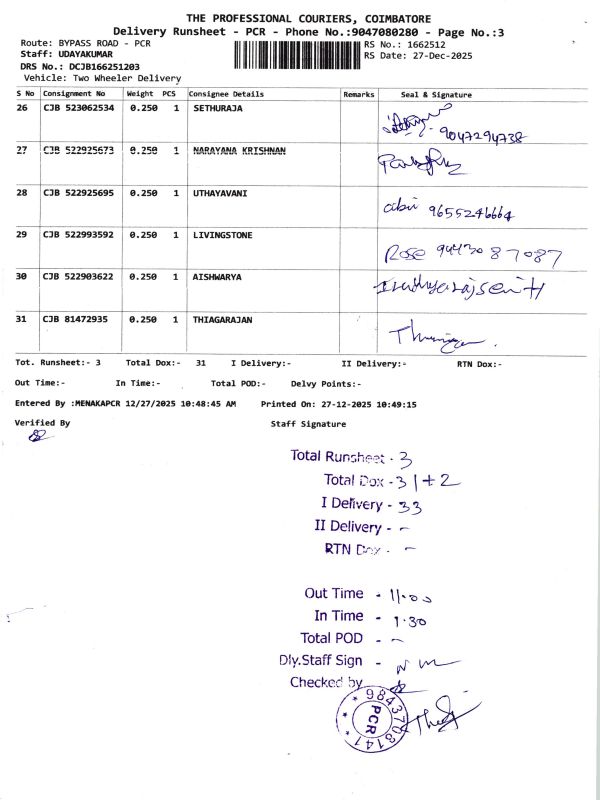 THE PROFESSIONAL COURIERS, COIMBATORE
Delivery Runsheet - PCR - Phone No.:9047080280 - Page No.:3
Route: BYPASS ROAD - PCR
RS No.: 1662512
Staff: UDAYAKUMAR
RS Date: 27-Dec-2025
DRS No.: DCJB166251203
Vehicle: Two Wheeler Delivery
S No Consignment No Weight PCS Consignee Details Remarks Seal & Signature
26 CJB 523062534 0.250 1 SETHURAJA
9047294738
27 CJB 522925673 0.250 1 NARAYANA KRISHNAN
28 CJB 522925695 0.250 1 UTHAYAVANI
abi 9655246664
29 CJB 522993592 0.250 1 LIVINGSTONE
Rose 9443087087
30 CJB 522903622 0.250 1 AISHWARYA
31 CJB 81472935 0.250 1 THIAGARAJAN
Tot. Runsheet:- 3 Total Dox:- 31 I Delivery:- II Delivery:- RTN Dox:-
Out Time:- In Time:- Total POD:- Delvy Points:-
Entered By :MENAKAPCR 12/27/2025 10:48:45 AM Printed On: 27-12-2025 10:49:15
Verified By Staff Signature
Total Runsheet - 3
Total Dox - 31+2
I Delivery - 33
II Delivery - -
RTN Dox - -
Out Time - 11.00
In Time - 1.30
Total POD - -
Dly.Staff Sign -
Checked by
PCR
9843708141